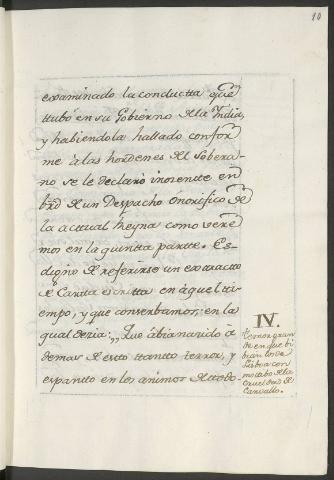 10
examinado la conductta que
ttubó en su Gobierno de la India,
y habiendola hallado confor
me á las hordenes del Sobera-
no se le declaró inorentte en
de un Despacho onorifico de
la acttual Reyna como vere
mos en la quintta partte. Es-
digno de referirse un exttractto
de Cartta escritta en aquel tti-
empo, y que conserbamos: en la
qual dezia: „ que abia nazido á
demas de estto ttantto terror, y
espantto en los animos de ttodo
IV.
terror gran
de en que bi
bian los de
Lisboa con
mottibo de la
Crueldad de
Carvallo.